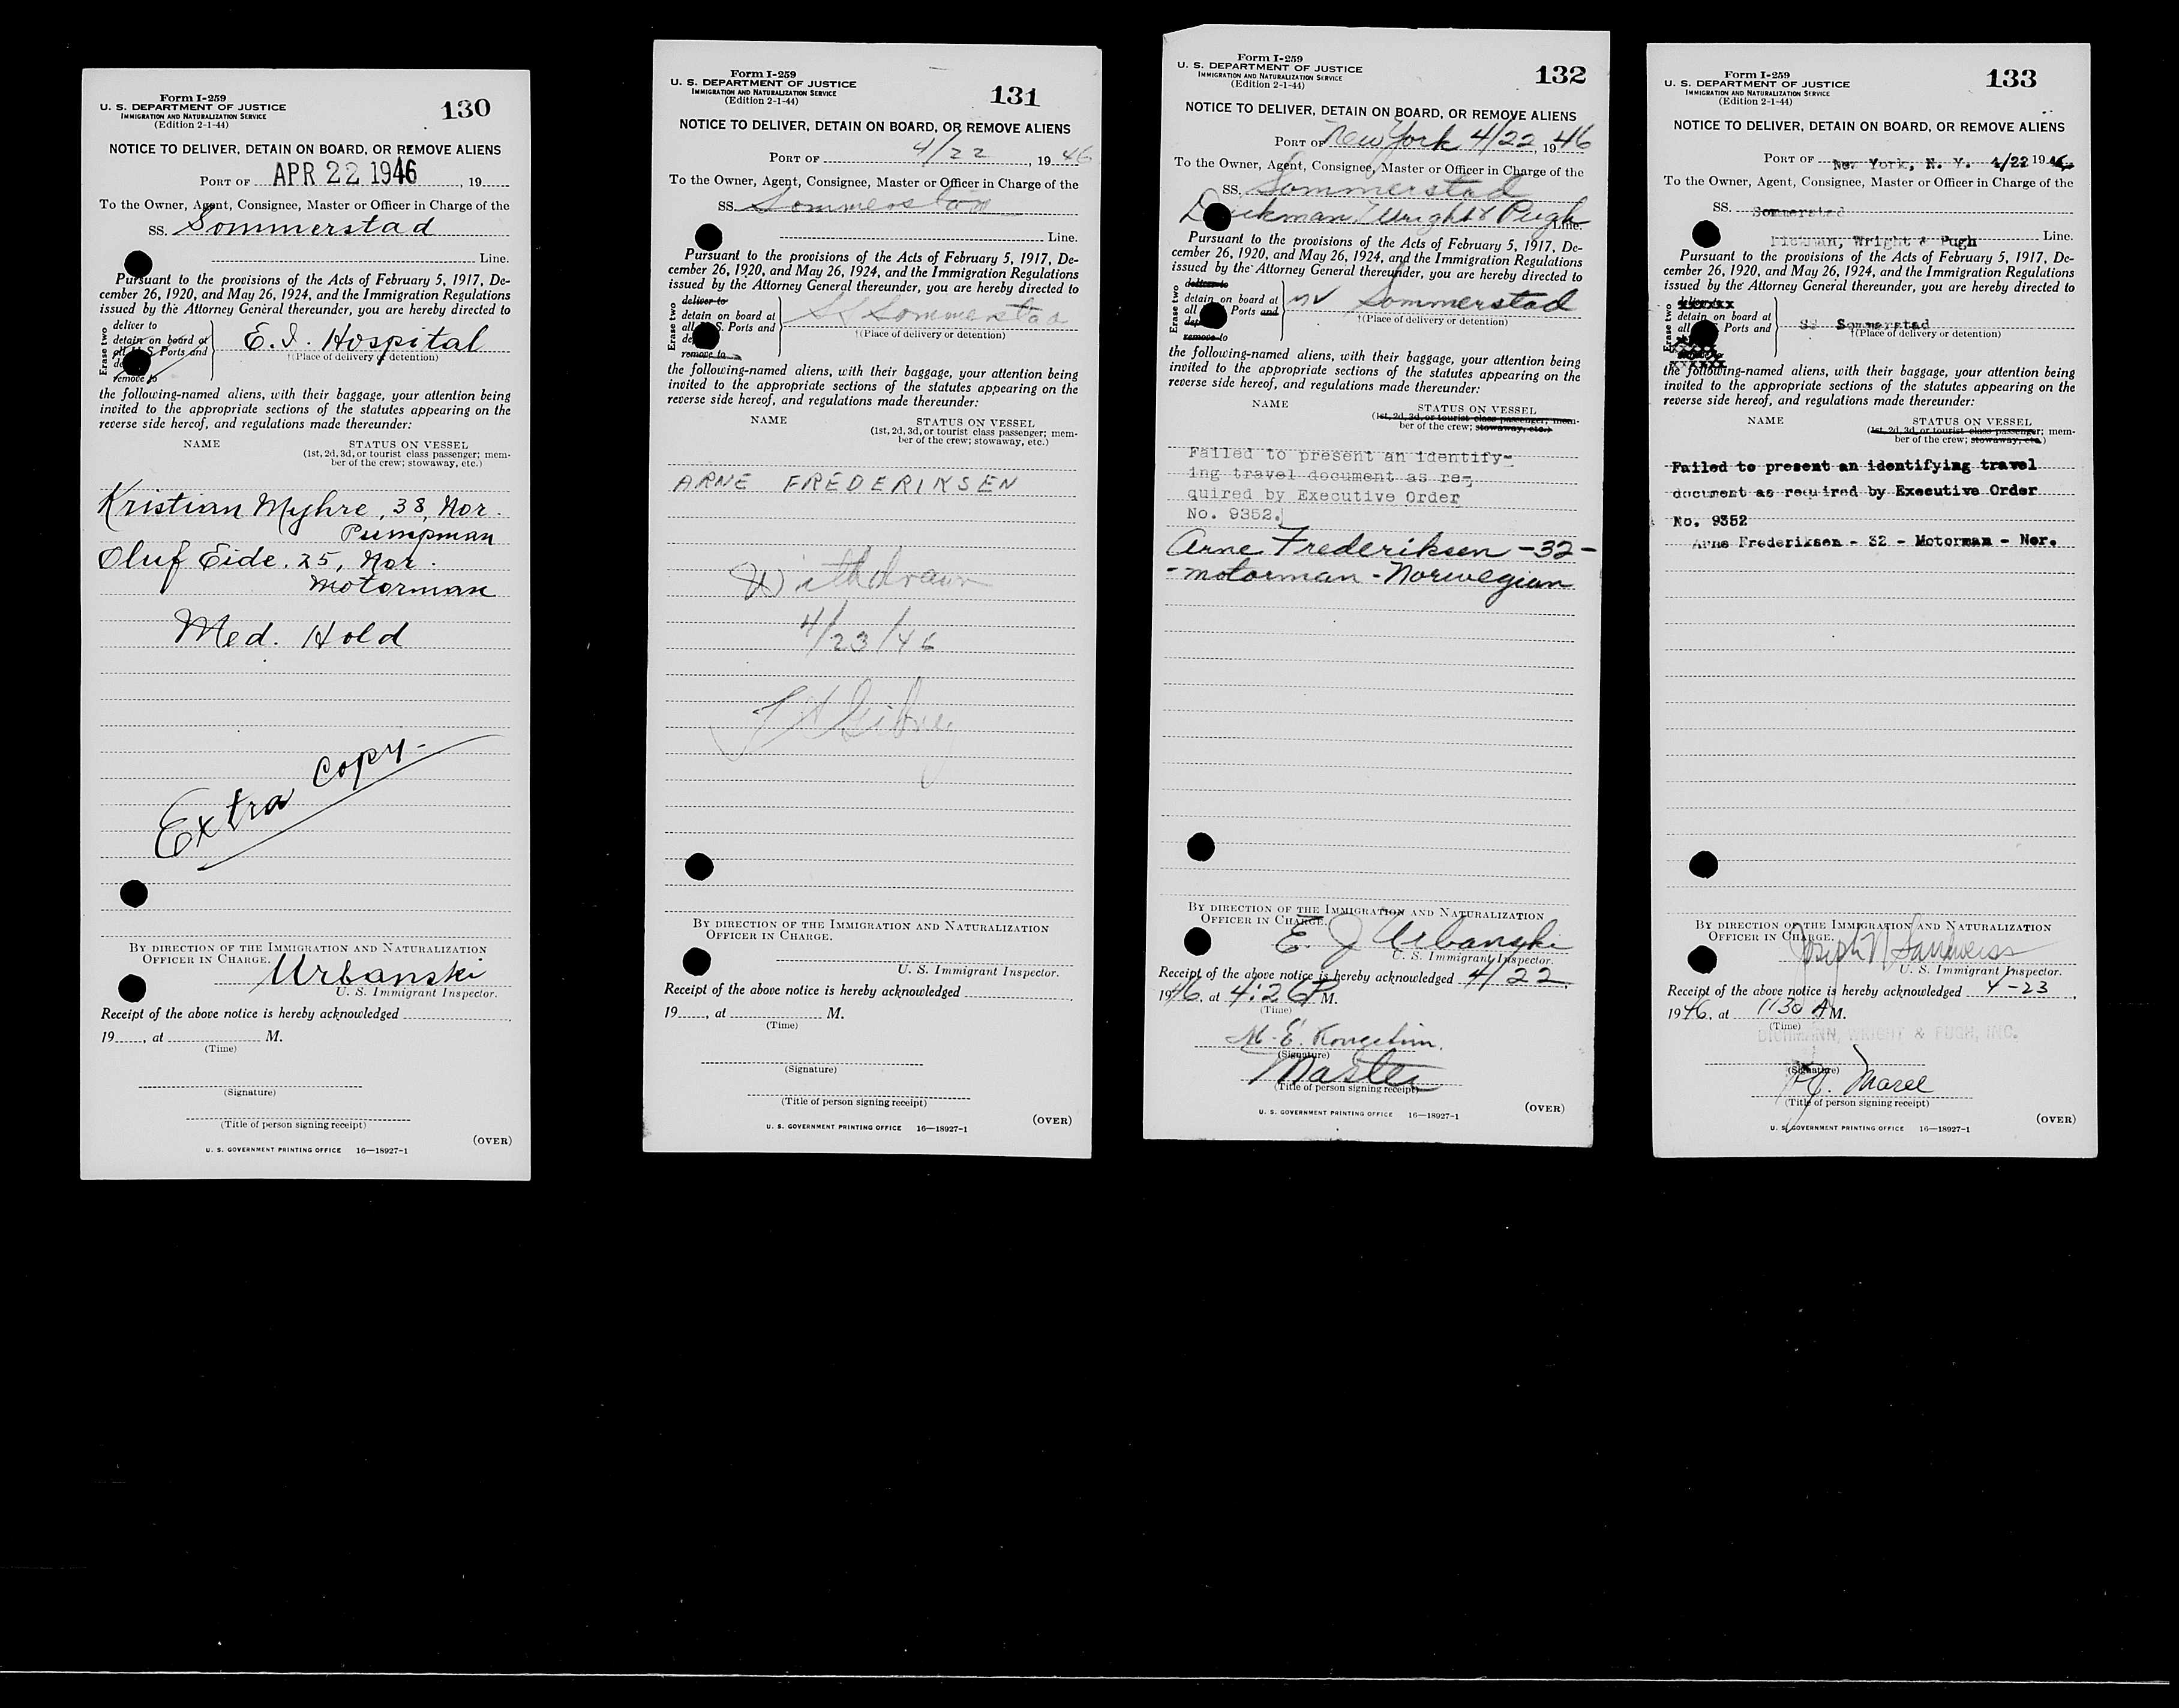 Form I-259
U. S. DEPARTMENT OF JUSTICE
IMMIGRATION AND NATURALIZATION SERVICE
(Edition 2-1-44)
130
NOTICE TO DELIVER, DETAIN ON BOARD, OR REMOVE ALIENS
PORT OF APR 22 1946, 19
To the Owner, Agent, Consignee, Master or Officer in Charge of the
SS. Sommerstad
Line.
Pursuant to the provisions of the Acts of February 5, 1917, De-
cember 26, 1920, and May 26, 1924, and the Immigration Regulations
issued by the Attorney General thereunder, you are hereby directed to
Erase two
deliver to
detain on board at
all U. S. Ports and
remove to
E. I. Hospital
†(Place of delivery or detention)
the following-named aliens, with their baggage, your attention being
invited to the appropriate sections of the statutes appearing on the
reverse side hereof, and regulations made thereunder:
NAME STATUS ON VESSEL
(1st, 2d, 3d, or tourist class passenger; mem-
ber of the crew; stowaway, etc.)
Kristian Myhre, 38, Nor.
Pumpman
Oluf Eide, 25, Nor.
Motorman
Med. Hold
Extra copy
BY DIRECTION OF THE IMMIGRATION AND NATURALIZATION
OFFICER IN CHARGE.
Urbanski
U. S. Immigrant Inspector.
Receipt of the above notice is hereby acknowledged
19, at M.
(Time)
(Signature)
(Title of person signing receipt)
(OVER)
U. S. GOVERNMENT PRINTING OFFICE 16—18927-1
Form I-259
U. S. DEPARTMENT OF JUSTICE
IMMIGRATION AND NATURALIZATION SERVICE
(Edition 2-1-44)
131
NOTICE TO DELIVER, DETAIN ON BOARD, OR REMOVE ALIENS
PORT OF 4/22, 1946
To the Owner, Agent, Consignee, Master or Officer in Charge of the
SS. Sommerstad
Line.
Pursuant to the provisions of the Acts of February 5, 1917, De-
cember 26, 1920, and May 26, 1924, and the Immigration Regulations
issued by the Attorney General thereunder, you are hereby directed to
Erase two
deliver to
detain on board at
all S. Ports and
remove to
SS Sommerstad
†(Place of delivery or detention)
the following-named aliens, with their baggage, your attention being
invited to the appropriate sections of the statutes appearing on the
reverse side hereof, and regulations made thereunder:
NAME STATUS ON VESSEL
(1st, 2d, 3d, or tourist class passenger; mem-
ber of the crew; stowaway, etc.)
ARNE FREDERIKSEN
Withdrawn
4/23/46
BY DIRECTION OF THE IMMIGRATION AND NATURALIZATION
OFFICER IN CHARGE.
U. S. Immigrant Inspector.
Receipt of the above notice is hereby acknowledged
19, at M.
(Time)
(Signature)
(Title of person signing receipt)
(OVER)
U. S. GOVERNMENT PRINTING OFFICE 16—18927-1
Form I-259
U. S. DEPARTMENT OF JUSTICE
IMMIGRATION AND NATURALIZATION SERVICE
(Edition 2-1-44)
132
NOTICE TO DELIVER, DETAIN ON BOARD, OR REMOVE ALIENS
PORT OF New York 4/22, 1946
To the Owner, Agent, Consignee, Master or Officer in Charge of the
SS. Sommerstad
Wright & Pugh Line.
Pursuant to the provisions of the Acts of February 5, 1917, De-
cember 26, 1920, and May 26, 1924, and the Immigration Regulations
issued by the Attorney General thereunder, you are hereby directed to
Erase two
deliver to
detain on board at
all Ports and
remove to
MV Sommerstad
†(Place of delivery or detention)
the following-named aliens, with their baggage, your attention being
invited to the appropriate sections of the statutes appearing on the
reverse side hereof, and regulations made thereunder:
NAME STATUS ON VESSEL
(1st, 2d, 3d, or tourist class passenger; mem-
ber of the crew; stowaway, etc.)
Failed to present an identify-
ing travel document as re-
quired by Executive Order
No. 9352.
Arne Frederiksen -32-
-motorman -Norwegian
BY DIRECTION OF THE IMMIGRATION AND NATURALIZATION
OFFICER IN CHARGE.
E. J Urbanski
U. S. Immigrant Inspector.
Receipt of the above notice is hereby acknowledged 4/22,
1946, at 4:26 P M.
(Time)
(Signature)
Master
(Title of person signing receipt)
(OVER)
U. S. GOVERNMENT PRINTING OFFICE 16—18927-1
Form I-259
U. S. DEPARTMENT OF JUSTICE
IMMIGRATION AND NATURALIZATION SERVICE
(Edition 2-1-44)
133
NOTICE TO DELIVER, DETAIN ON BOARD, OR REMOVE ALIENS
PORT OF New York, N. Y. 4/22 1946,
To the Owner, Agent, Consignee, Master or Officer in Charge of the
SS. Sommerstad
Wright & Pugh Line.
Pursuant to the provisions of the Acts of February 5, 1917, De-
cember 26, 1920, and May 26, 1924, and the Immigration Regulations
issued by the Attorney General thereunder, you are hereby directed to
Erase two
detain on board at
all Ports and
SS Sommerstad
†(Place of delivery or detention)
the following-named aliens, with their baggage, your attention being
invited to the appropriate sections of the statutes appearing on the
reverse side hereof, and regulations made thereunder:
NAME STATUS ON VESSEL
(1st, 2d, 3d, or tourist class passenger; mem-
ber of the crew; stowaway, etc.)
Failed to present an identifying travel
document as required by Executive Order
No. 9352
Arne Frederiksen - 32 - Motorman - Nor.
BY DIRECTION OF THE IMMIGRATION AND NATURALIZATION
OFFICER IN CHARGE.
Joseph N
U. S. Immigrant Inspector.
Receipt of the above notice is hereby acknowledged 4-23,
1946, at 1130 A M.
(Time)
WRIGHT & PUGH, INC.
(Signature)
(Title of person signing receipt)
(OVER)
U. S. GOVERNMENT PRINTING OFFICE 16—18927-1